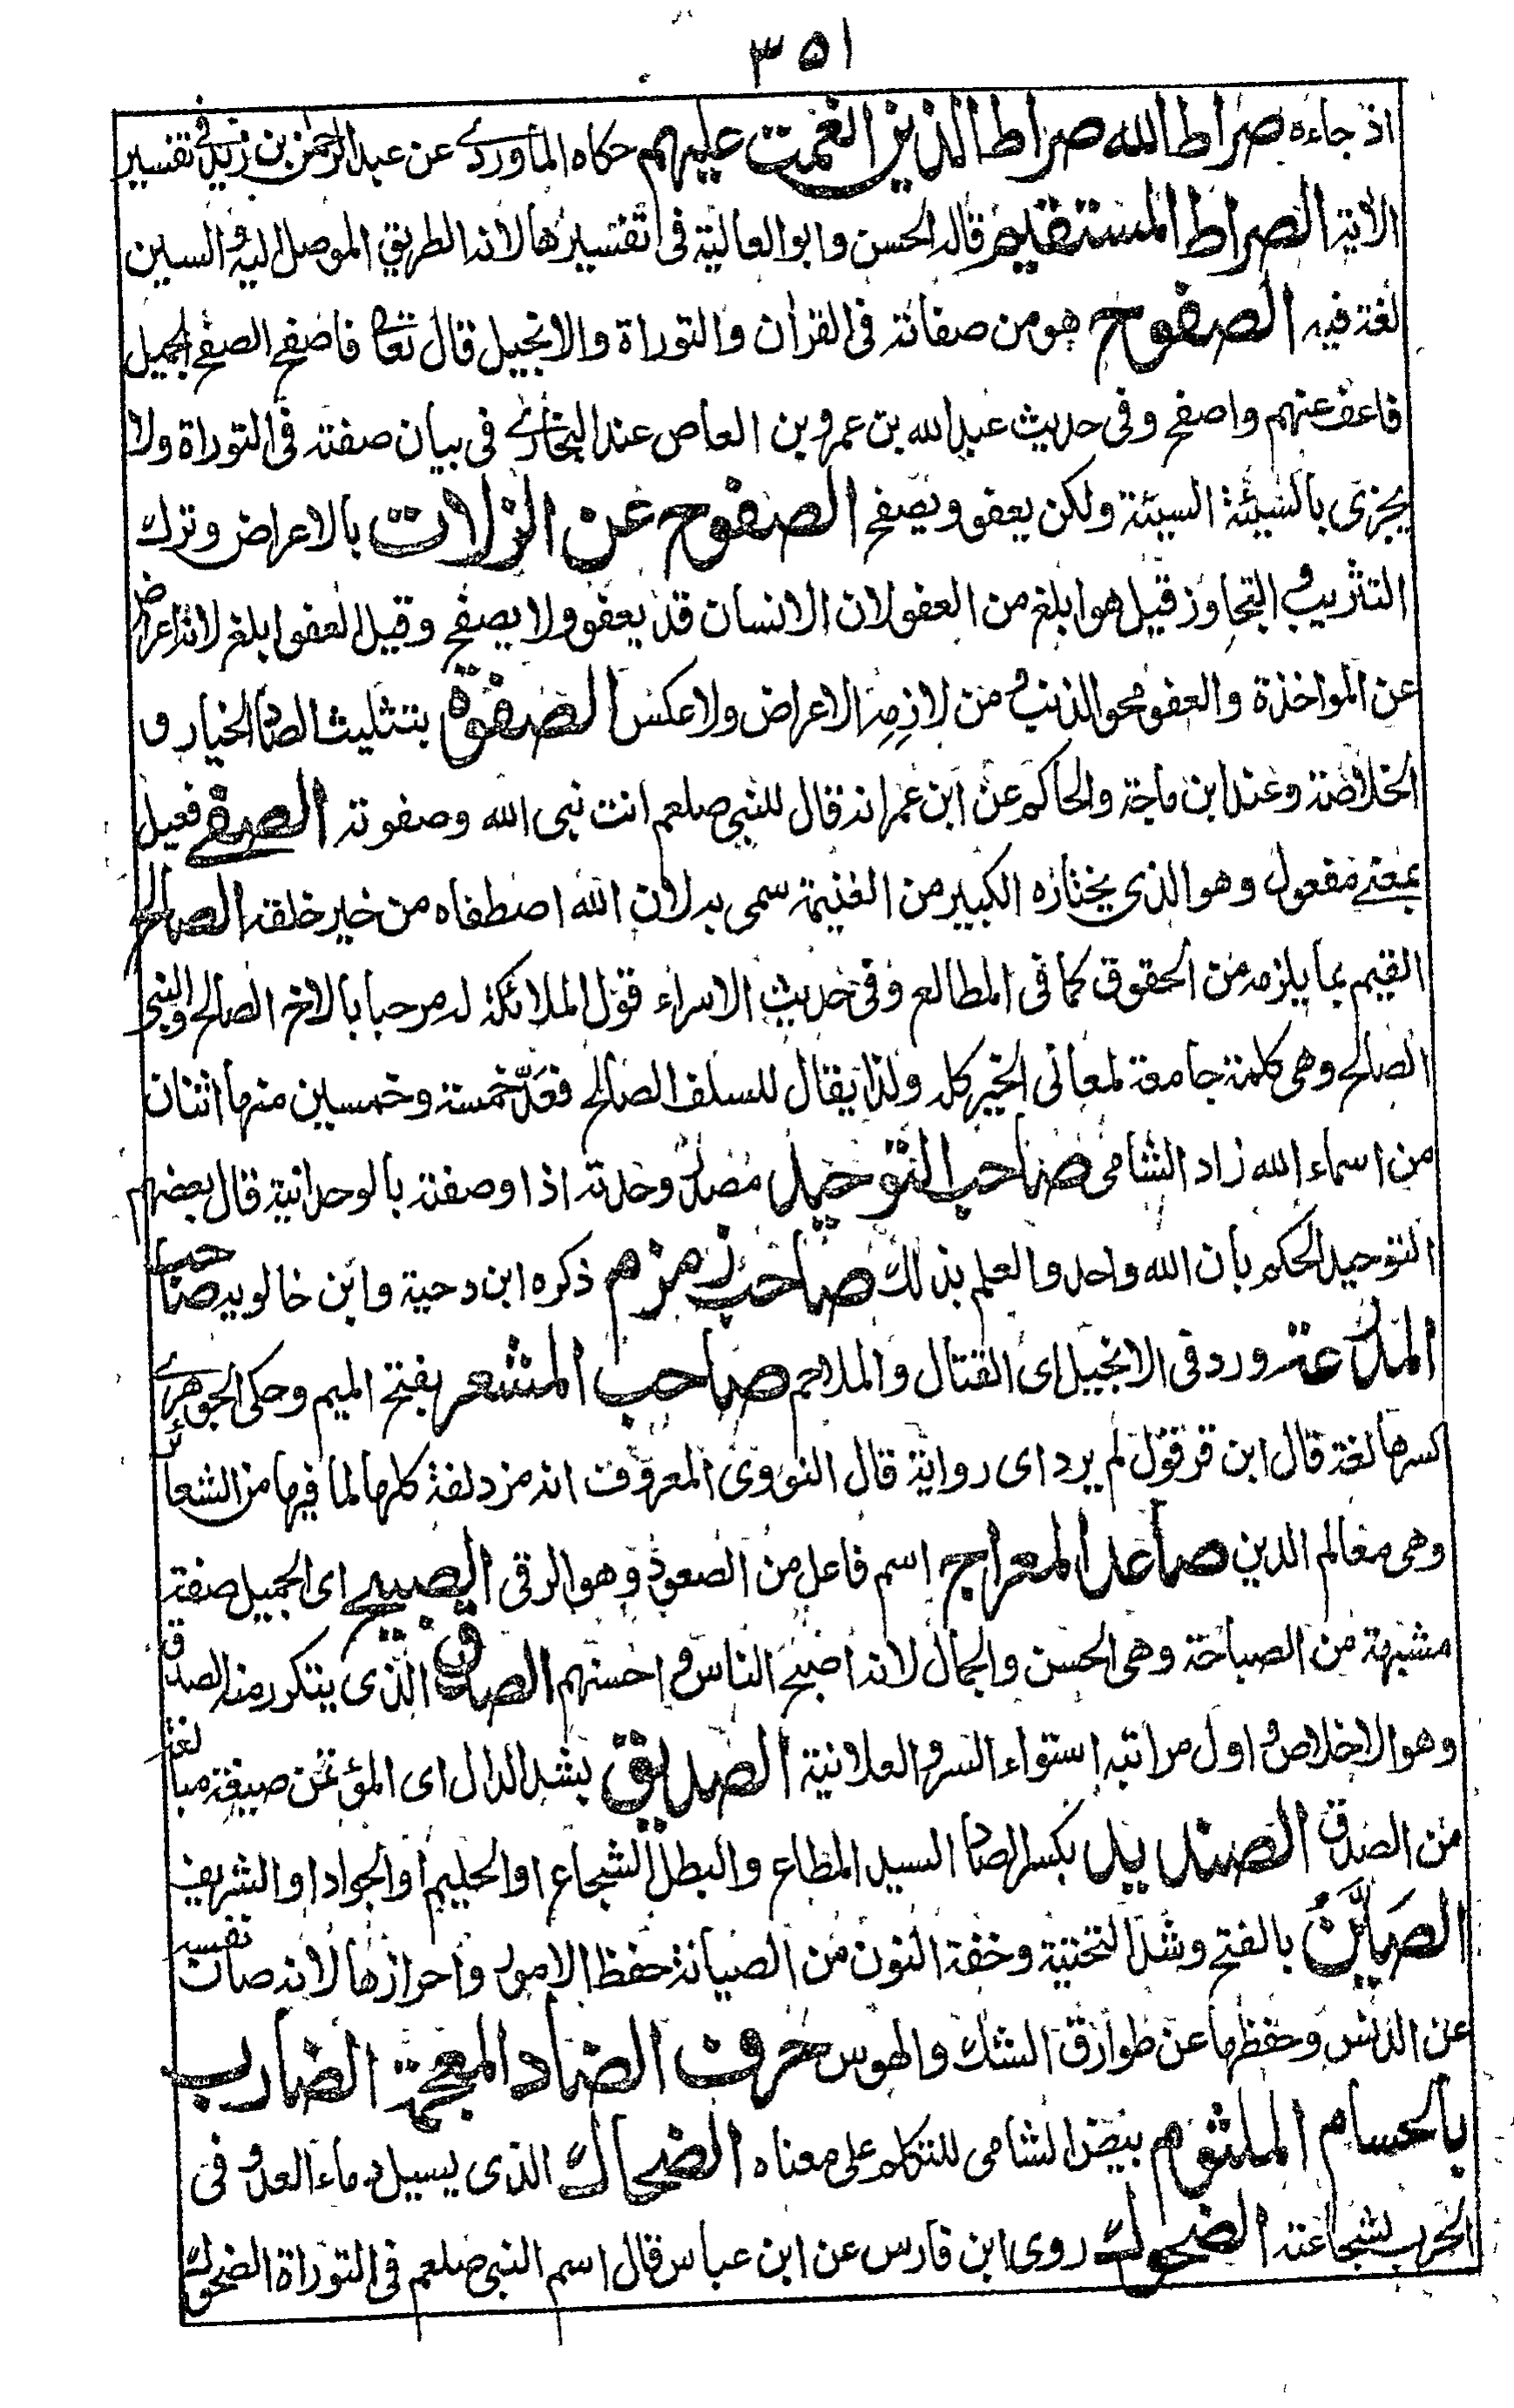 ٣٥١
اذ جاءه صراط الله صراط الذين انعمت عليهم حكاه الماوردى عن عبد الرحمن بن زيد فى تفسير
الاية الصراط المستقيم قاله الحسن وابو العالية فى تفسيرها لانه الطريق الموصل اليه و السين
لغة فيه الصفوح هو من صفاته فى القرآن والتوراة والانجيل قال تعا فاصفح الصفح الجميل
فاعف عنهم واصفح وفى حديث عبد الله بن عمرو بن العاص عند البخارى فى بيان صفته فى التوراة ولا
يجزى بالسيئة السيئة ولكن يعفو ويصفح الصفوح عن الزلات بالاعراض وترك
التثريب و التجاوز قيل هو ابلغ من العفو لان الانسان قد يعفو ولا يصفح وقيل العفو ابلغ لانه اعراض
عن المواخذة والعفو محو الذنب و من لازمه الاعراض ولا عكس الصفوة بتثليث الصاد الخيار و
الخلاصة وعند ابن ماجة والحاكم عن ابن عمر انه قال للنبى صلعم انت نبى الله وصفوته الصفى فعيل
بمعنى مفعول وهو الذى يختاره الكبير من الغنيمة سمى به لان الله اصطفاه من خير خلقه الصالح
القيم بما يلزمه من الحقوق كما فى المطالع وفى حديث الاسراء قول الملائكة له مرحبا بالاخ الصالح والنبى
الصالح وهى كلمة جامعة لمعانى الخير كله ولذا يقال للسلف الصالح فعد خمسة وخمسين منها اثنان
من اسماء الله زاد الشامى صاحب التوحيد مصدر وحدته اذا وصفته بالوحدانية قال بعضهم
التوحيد الحكم بان الله واحد والعلم بذلك صاحب زمزم ذكره ابن دحية وابن خالويه صاحب
المدرعة ورد فى الانجيل اى القتال والملاحم صاحب المشعر بفتح الميم وحكى الجوهرى
كسرها لغة قال ابن قرقول لم يرد اى رواية قال النووى المعروف انه مزدلفة كلها لما فيها من الشعائر
وهى معالم الدين صاعد المعراج اسم فاعل من الصعود وهو الرقى الصبيح اى الجميل صفة
مشبهة من الصباحة وهى الحسن والجمال لانه اصبح الناس و احسنهم الصادق الذى يتكرر منه الصدق
وهو الاخلاص و اول مراتبه استواء السر و العلانية الصديق بشد الدال اى المؤتمن صيغة مبالغة
من الصدق الصنديد بكسر الصاد السيد المطاع والبطل الشجاع او الحليم او الجواد او الشريف
الصَيِّن بالفتح وشد التحتية وخفة النون من الصيانة حفظ الامور واحرازها لانه صان نفسه
عن الدنس وحفظها عن طوارق الشك والهوس حرف الضاد المعجمة الضارب
بالحسام الملثوم بيض الشامى للتكلم على معناه الضحاك الذى يسيل دماء العدو فى
الحرب لشجاعته الضحوك روى ابن فارس عن ابن عباس قال اسم النبى صلعم فى التوراة الضحوك